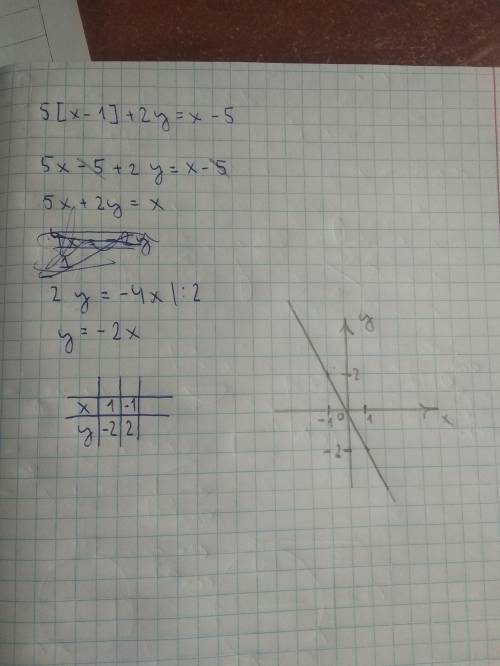 5[x-1]+2y=x-5
5x-5+2y=x-5
5x+2y=x
2y=-4x|:2
y=-2x
x 1 -1
y -2 2
y
2
-1 0 1 x
-2